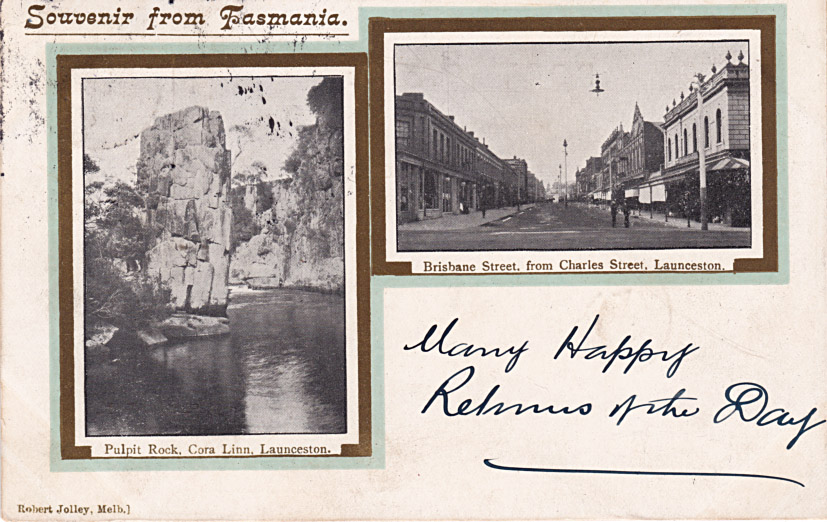 Souvenir from Tasmania.
Brisbane Street, from Charles Street, Launceston.
Pulpit Rock, Cora Linn, Launceston.
Many Happy
Returns of the Day
Robert Jolley, Melb.]